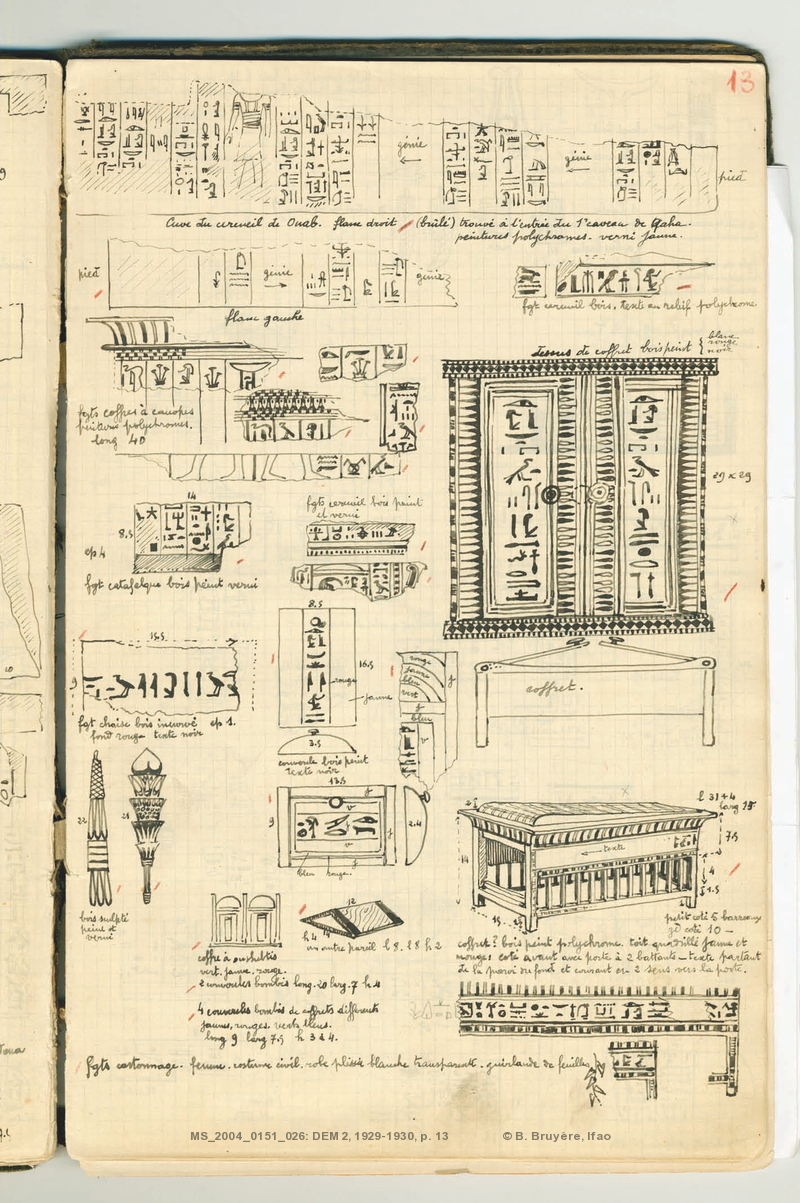 13
génie
génie
pied
Cuve du cercueil de Ouab. flanc droit (brûlé) trouvé à l'entrée du 1er caveau de Qaha.
peintures polychromes. verni jaune.
pied
génie
génie
flanc gauche
fgt cercueil bois. texte en relief polychrome
dessus de coffret bois peint
blanc
rouge
noir
fgts coffres à canopes
peinture polychromes.
long 40
29 x 29
14
8,5
ep 4
fgts cercueil bois peint
et verni
fgt catafalque bois peint verni
15.5
9
fgt chaise bois incurvé ep 1.
fond rouge texte noir
8.5
16.5
rouge
jaune
3.5
couvercle bois peint
texte noir
rouge
jaune
bleu
vert
j
j
bleu
v
coffret.
22
21
bois sculpté
peint et
verni
13.5
9
v
v
j
j
bleu rouge.
2.4
l 31+4
larg 15
texte
14
7.5
4
1.5
15
petit coté 5 barreaux
gd coté 10 –
coffret? bois peint polychrome. toit quadrillé jaune et
rouge coté avant avec porte à 2 battants – texte partant
de la paroi du fond et courant en 2 sens vers la porte.
coffre à oushebtis
vert. jaune. rouge.
2 couvercles bombés long. 20 larg. 7 h 4
12
h 4
un autre pareil l 8. l 8 h 2
4 couvercles bombés de coffrets différents
jaunes, rouges, verts bleus.
long 9 larg 7,5 h 3 à 4.
fgts cartonnage. femme. costume civil. robe plissée blanche transparente. guirlande de feuilles
MS_2004_0151_026: DEM 2, 1929-1930, p. 13 © B. Bruyère, Ifao